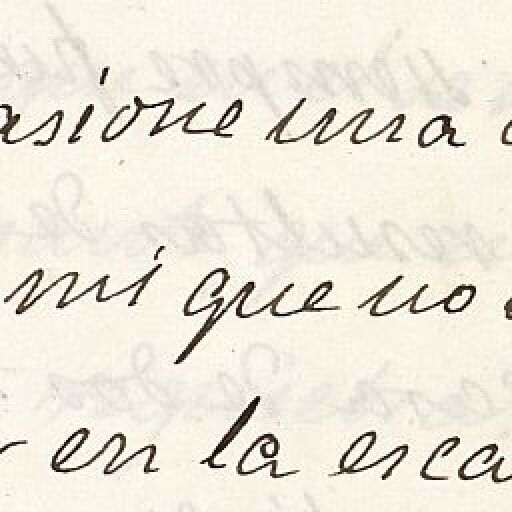 asione una
mi que no
en la esca